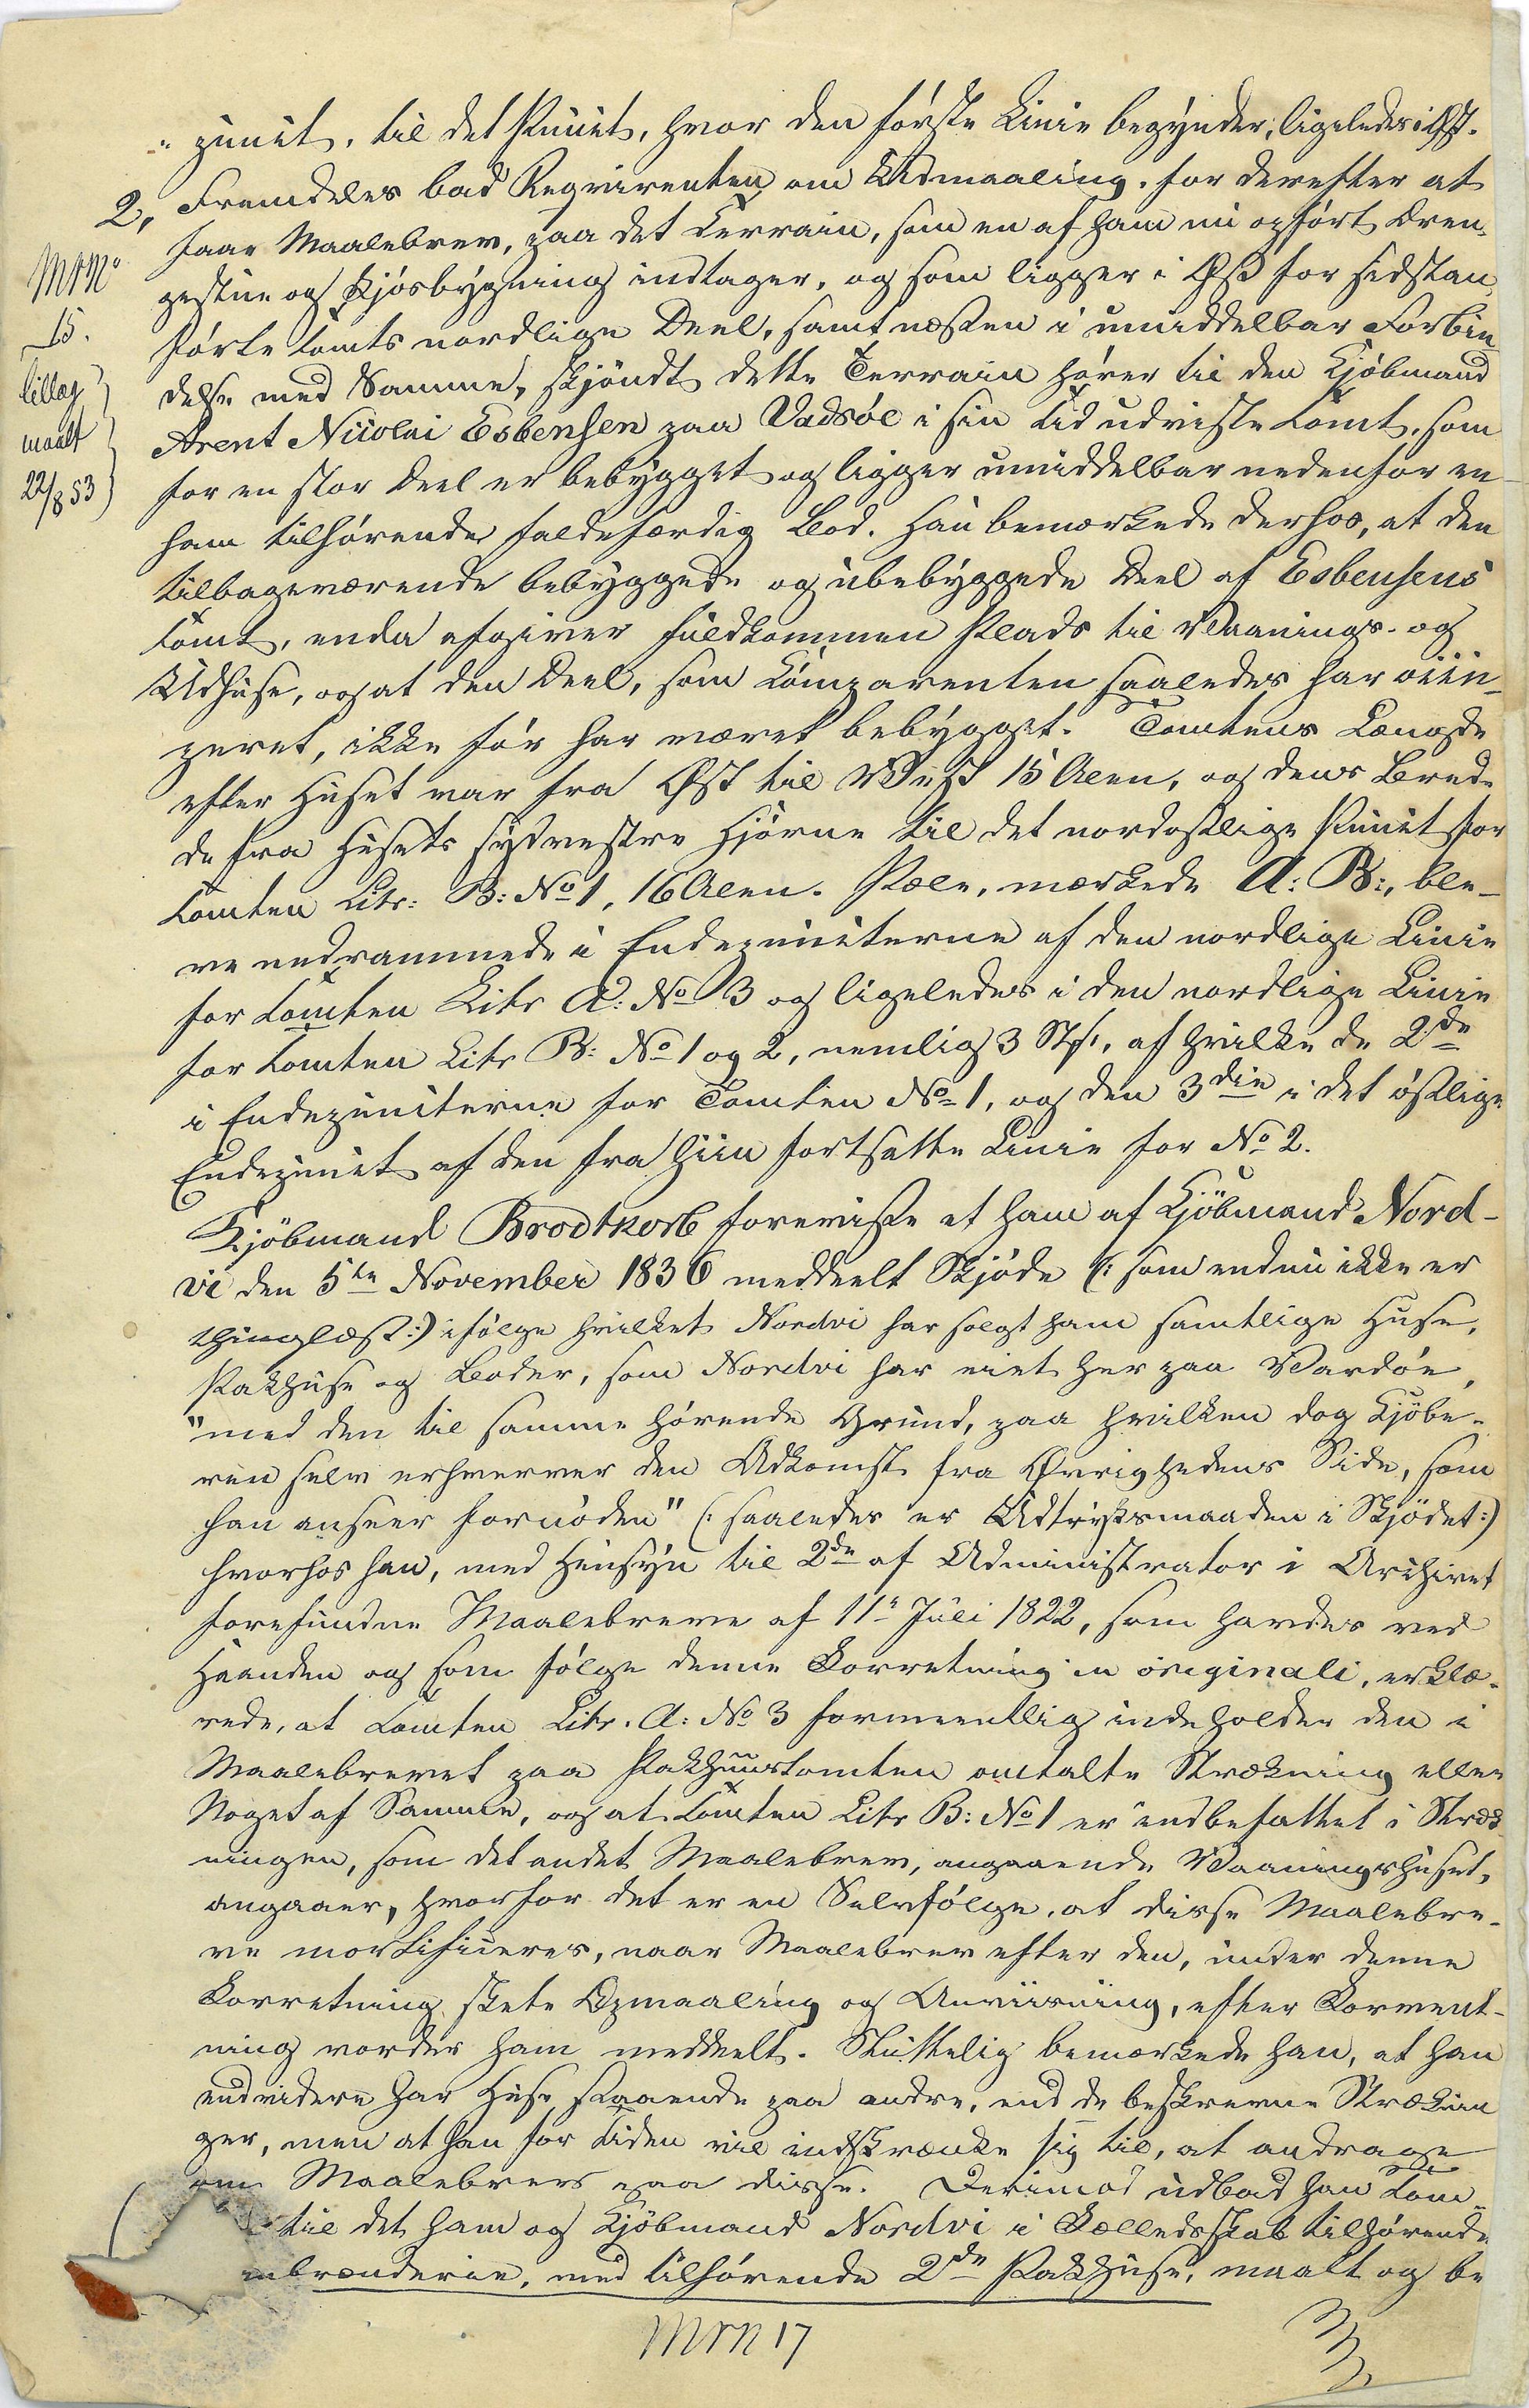 punct, til det Punct, hvor den første Linie begynder, ligeledes i Øst.
2, Fremdeles bad Reqvirenten om Udmaaling, for derefter at
faae Maalebrev, paa det Terrain, som en af ham nu opført Dren-
gestue og Fjøsbygning indtager, og som ligger i Øst for sidstan-
førte Tomts nordlige Deel, samt næsten i umiddelbar Forbin-
delse med Samme, skjøndt dette Terrain hører til den Kjøbmand
Arent Nicolai Esbensen paa Vadsøe i sin Tid udviste Tomt, som
for en stor Deel er bebygget og ligger umiddelbar nedenfor en
ham tilhørende faldefærdig Bod. Han bemærkede derhos, at den
tilbageværende bebyggede og ubebyggede Deel af Esbensens
Tomt, enda afgiver fuldkommen Plads til Vaanings- og
Udhuse, og at den Deel, som Comparenten saaledes har occu-
peret, ikke før har været bebygget. Tomtens Længde
efter Huset var fra Øst til Vest 15 Alen, og dens Bred-
de fra Husets sydvestre Hjørne til det nordostlige Punct for
Tomten Litr: B: No 1, 16 Alen. Pæle, mærkede A: B:, ble-
ve nedrammede i Endepuncterne af den nordlige Linie
for Tomten Litr A: No 3 og ligeledes i den nordlige Linie
for Tomten Litr B: No 1 og 2, nemlig 3 Stk., af hvilke de 2de
i Endepuncterne for Tomten No 1, og den 3die i det østlige
Endepunct af den fra hiin fortsatte Linie for No 2.
Kjøbmand Brodtkorb foreviste et ham af Kjøbmand Nord-
vi den 5te November 1836 meddeelt Skjøde (: som endnu ikke er
thinglæst:) ifølge hvilket Nordvi har solgt ham samtlige Huse,
Pakhuse og Boder, som Nordvi har eiet her paa Vardøe,
"med den til samme hørende Grund, paa hvilken dog Kjøbe-
ren selv erhverver den Adkomst fra Øvrighedens Side, som
han anseer fornøden" (: saaledes er Udtryksmaaden i Skjødet:)
hvorhos han, med Hensyn til 2de af Administrator i Archivet
forefundne Maalebreve af 11te Juli 1822, som havdes ved
Haanden og som følge denne Forretning in originali, erklæ-
rede, at Tomten Litr. A: No 3 formeentlig indeholder den i
Maalebrevet paa Pakhuustomten omtalte Strækning eller
Noget af Samme, og at Tomten Litr B: No 1 er indbefattet i Stræk-
ningen, som det andet Maalebrev, angaaende Vaaningshuset,
angaaer, hvorfor det er en Selvfølge, at disse Maalebre-
ve mortificeres, naar Maalebrev efter den, under denne
Forretning skete Opmaaling og Anviisning, efter Forvent-
ning vorder ham meddeelt. Sluttelig bemærkede han, at han
endvidere har Huse staaende paa andre, end de beskrevne Stræknin-
ger, men at han for Tiden vil indskrænke sig til, at andrage
om Maalebrev paa disse. Derimod udbad han Tom-
til det ham og Kjøbmand Nordvi i Fælledsskab tilhørende
nbrænderie, med tilhørende 2de Pakhuse, maalt og be
MrNo
15.
tillæg
maalt
22/8 53
Mrn 17